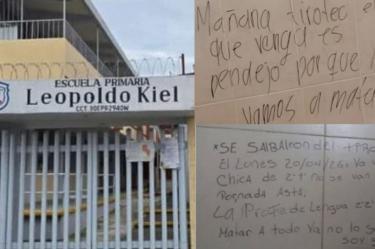 ESCUELA PRIMARIA
Leopoldo Kiel
CCT 30EPR2940W
Mañana tirotec e
que venga es
pendejo porque
vamos a matar
*SE SALBAron del +PRO
El Lunes 20/04/26
Chica de 2°1 no se van
Poznada Asta
La Profa de Lengua 22
Matar A todo Ya no lo S
SOY